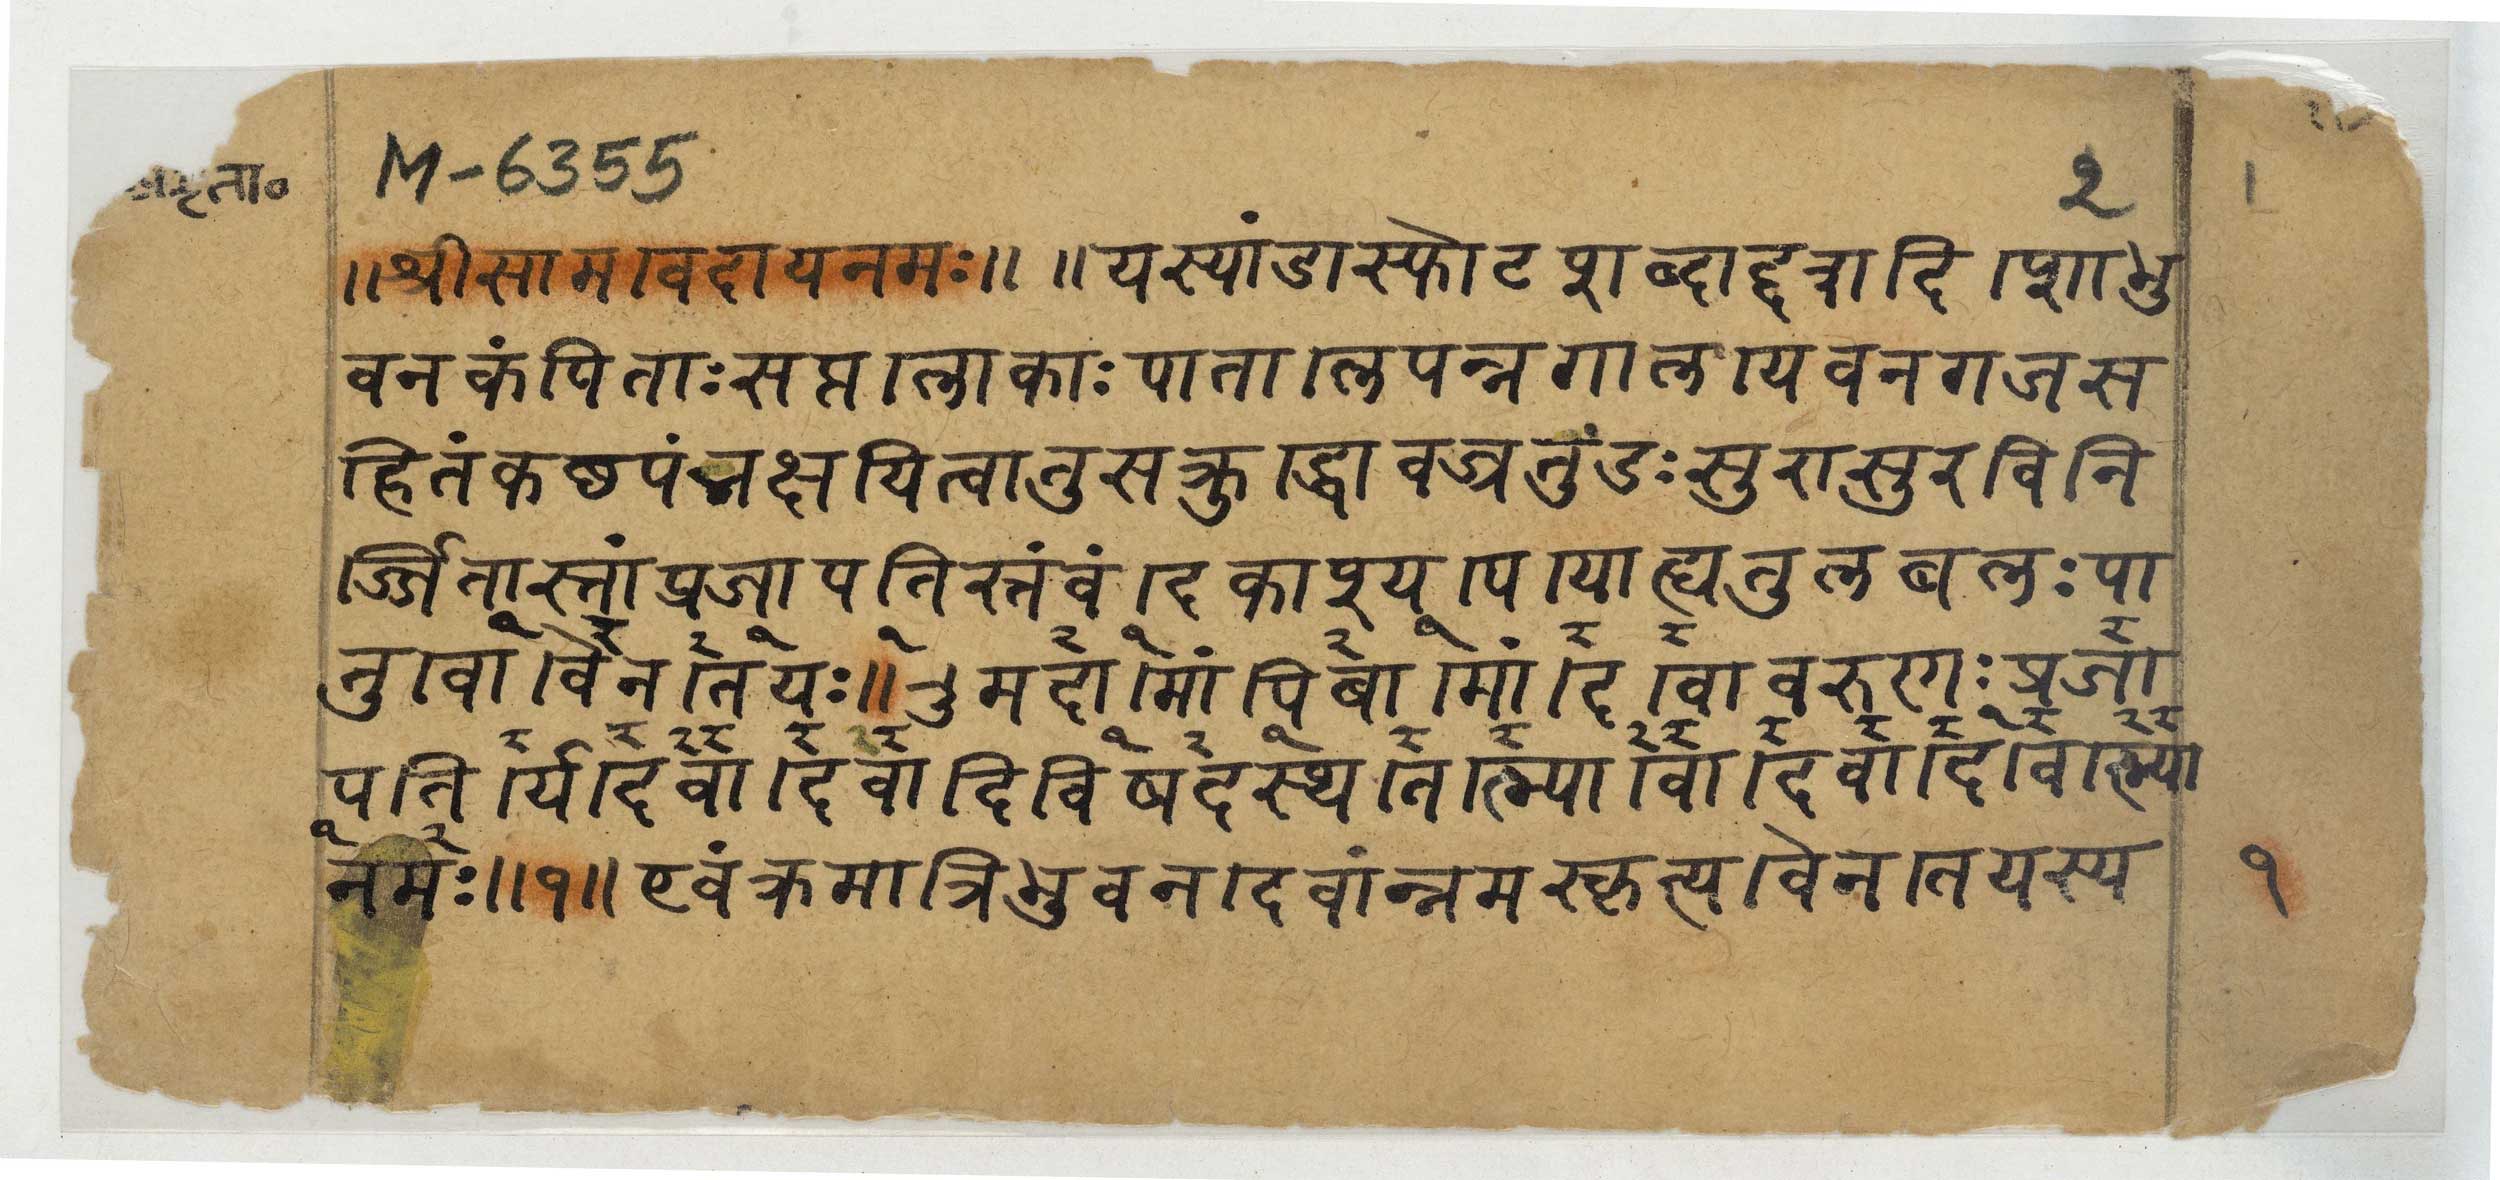 M-6355
१
॥श्रीसामवेदायनमः॥ ॥यस्यांडास्फोटशब्दाद्दत्रादिशोभु
वनकंपिताःसप्तलोकाःपातालेपन्नगालयेवनगजस
हितंकछपंभक्षयित्वातुसक्रुद्धोवज्रतुंडःसुरासुरविनि
र्ज्जितास्तांप्रजापतिस्तंवंदेकाश्यपेयोह्यतुलबलःपा
तुवोवैनतेयः॥३मदोमोंपिबामोंदेवोवरुणःप्रजा
पतिर्येदेवादेवादिविषदस्थतेभ्योवोदेवादेवेभ्यो
नमः॥१॥एवंक्रमात्रिभुवनेदेवांन्नमस्कृत्यवैनतेयस्य
१